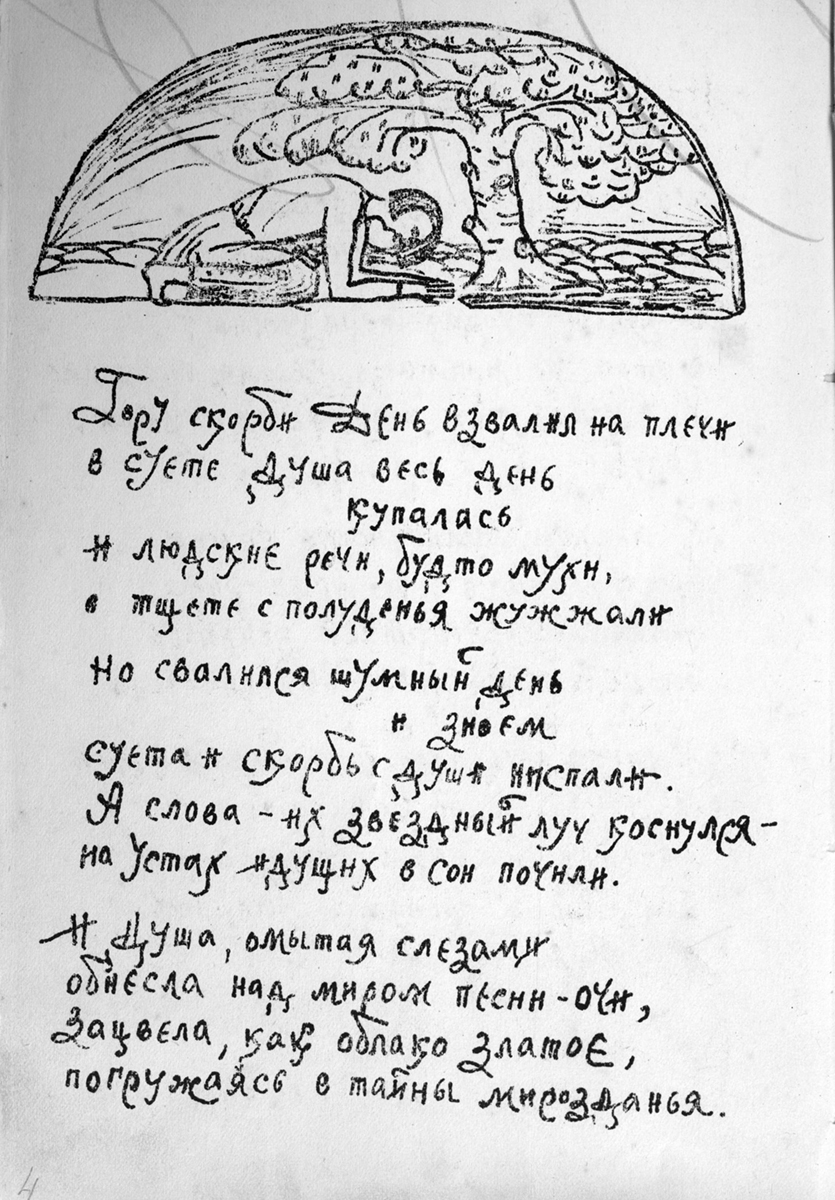 Гору скорби День взвалил на плечи
в суете душа весь день
купалась
и людские речи, будто мухи,
в тщете с полуденья жужжали
Но свалился шумный день
и зноем
суета и скорбь с души ниспали.
А слова – их звездный луч коснулся –
на устах идущих в сон почили.
И душа, омытая слезами
обнесла над миром песни-очи,
зацвела, как облако златое,
погружаясь в тайны мирозданья.
4